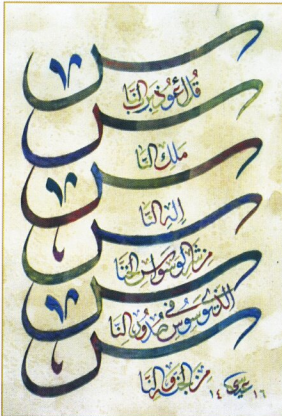 قل أعوذ برب الناس
ملك الناس
إله الناس
من شر الوسواس الخناس
الذي يوسوس في صدور الناس
من الجنة والناس
١٤١٦